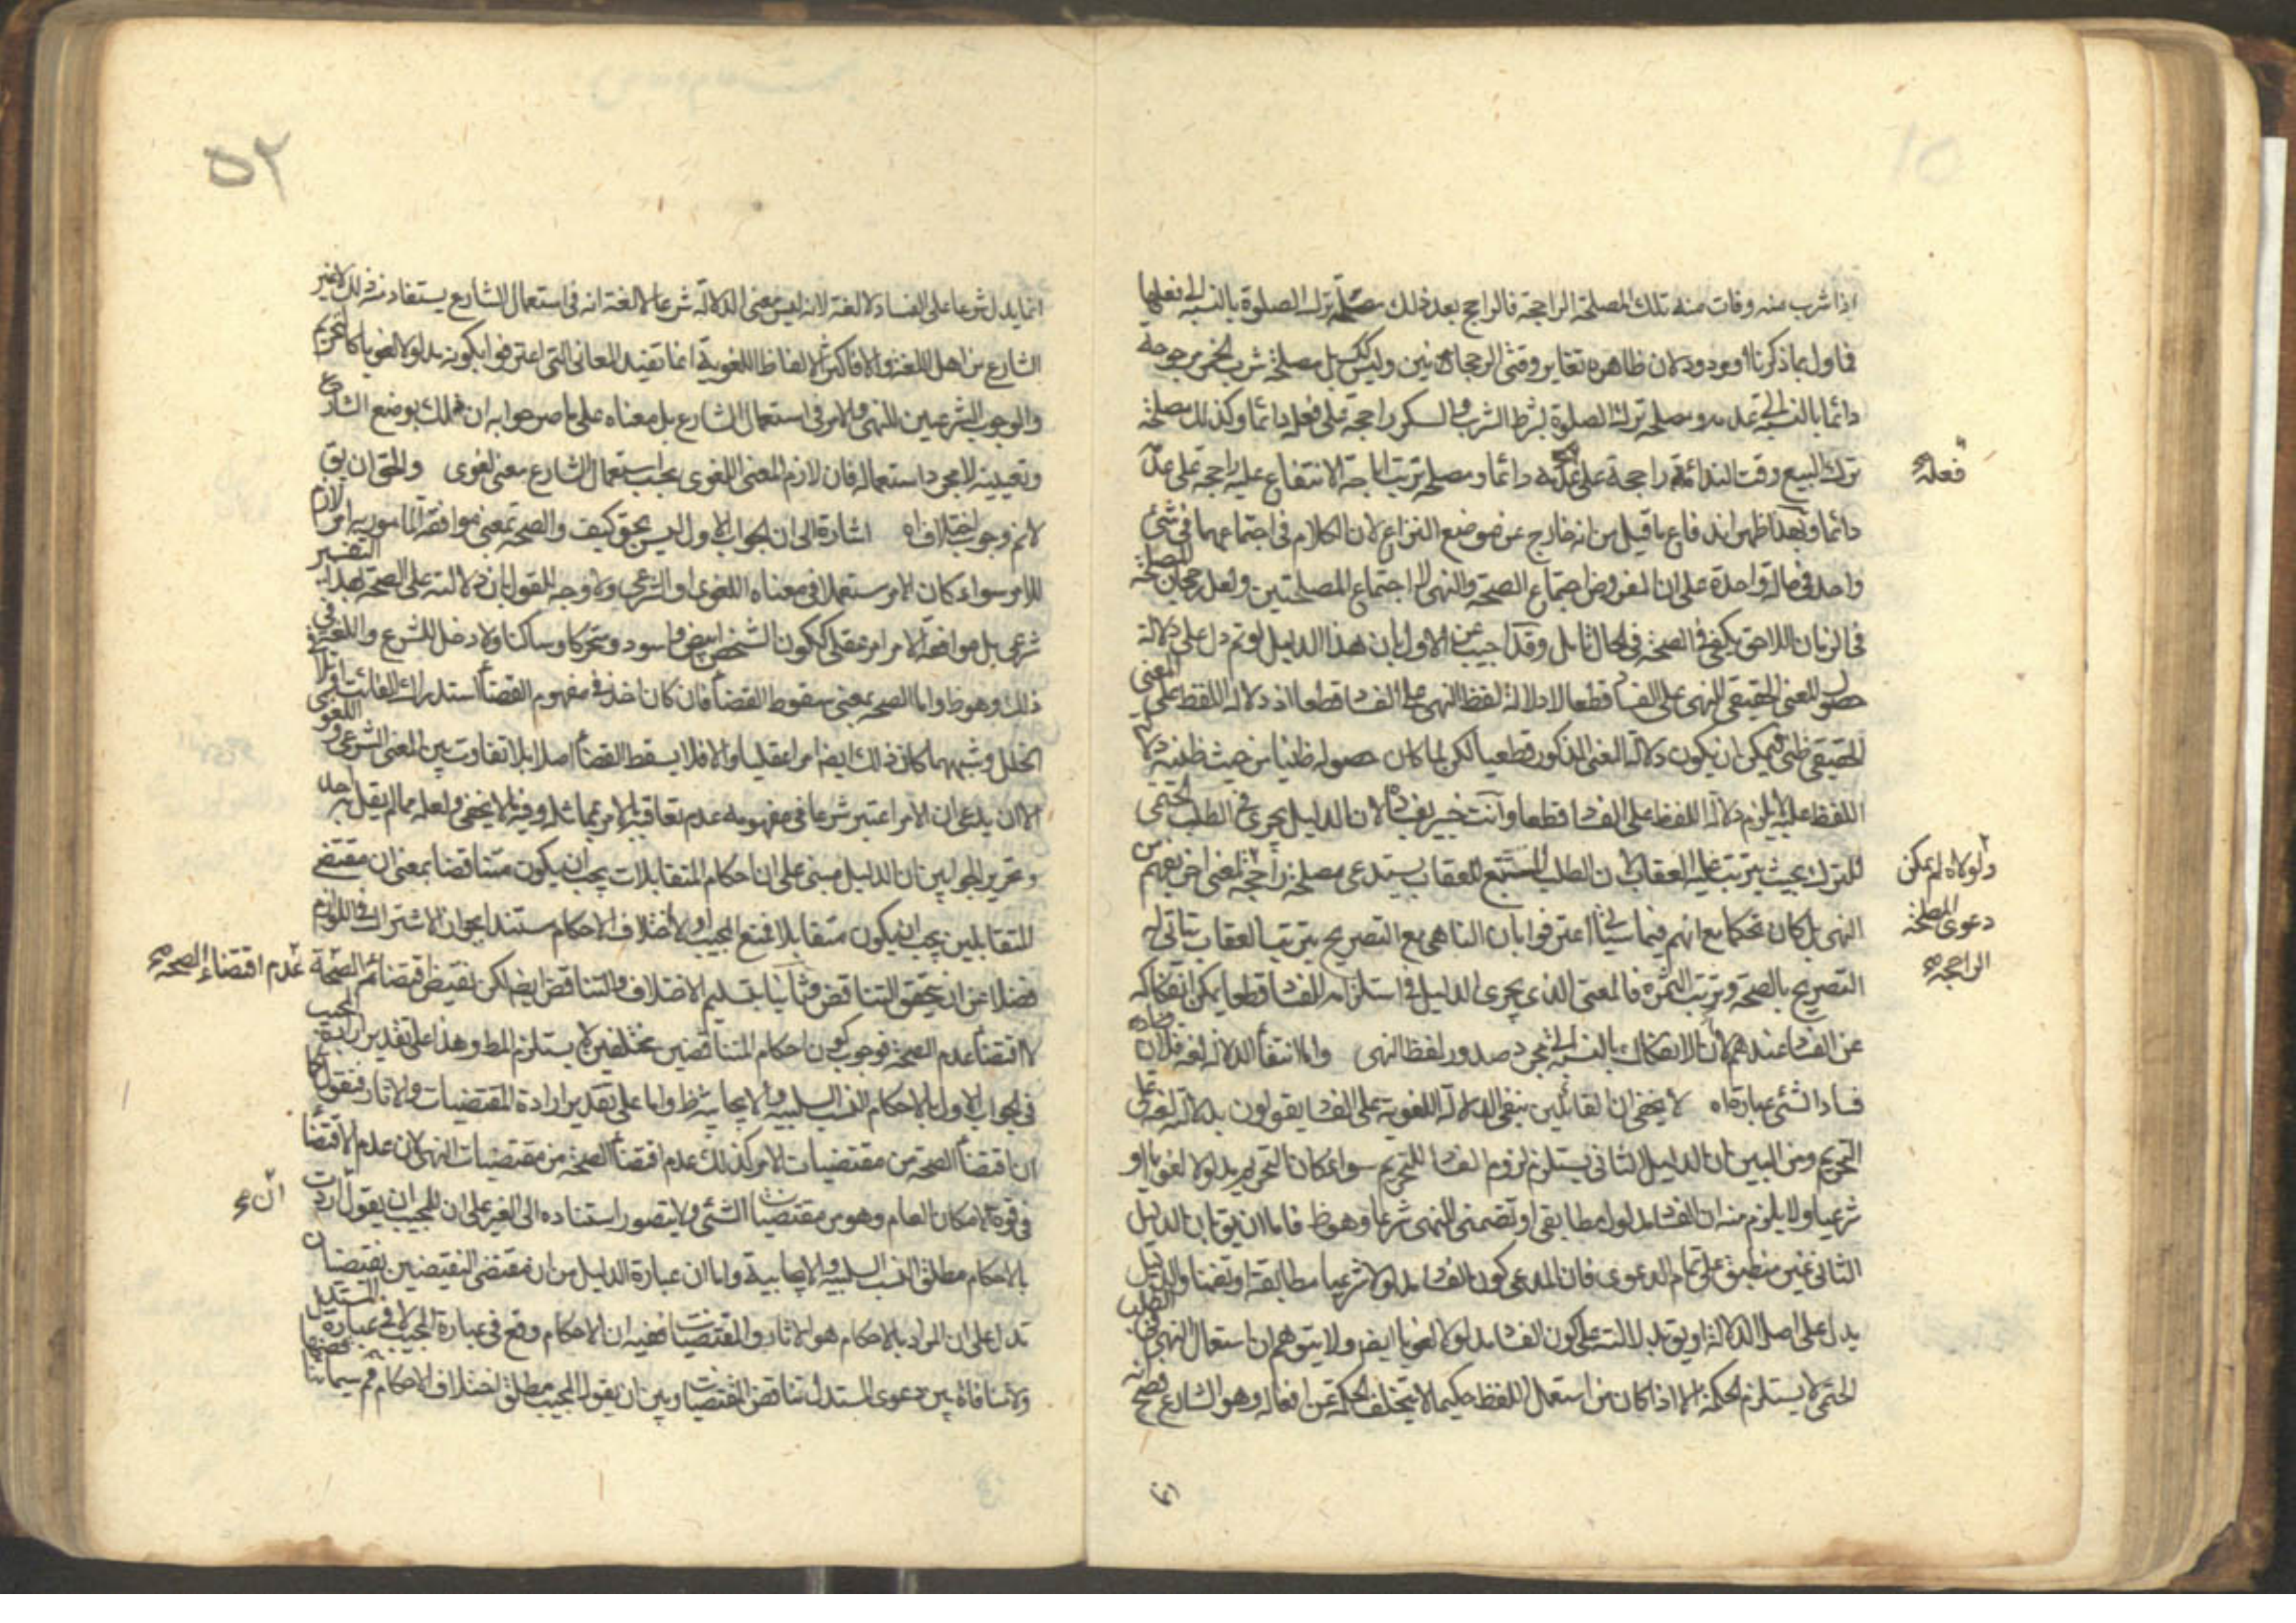 اذا شرب منه وفات منه تلك المصلحة الراجحة فالراجح بعد ذلك مصلحة ترك الصلوة بالنسبة الى فعلها
فما ول بما ذكرنا او مردود لان ظاهره تغاير وقتى الرجحانين وليس كك بل مصلحة شرب الخمر مرجوحة
دائما بالنسبة الى عدمه ومصلحة ترك الصلوة بشرط الشرب والسكر راجحة على فعله دائما وكذلك مصلحة
ترك البيع وقت النداء راجحة على دائما ومصلحة ترتب اباحة الانتفاع عليه راجحة على عدمه
فعله
دائما وبهذا ظهر اندفاع ما قيل من انه خارج عن موضع النزاع لان الكلام فى اجتماعهما فى شئ
واحد فى حالة واحدة على ان المفروض اجتماع الصحة والنهى لا اجتماع المصلحتين ولعل رجحان المصلحة
فى الزمان اللاحق يكفى فى الصحة فى الحال تامل وقد اجيب عن الاول بان هذا الدليل لو تم دل على دلالة
حصول المعنى الحقيقى للنهى على الفساد قطعا لا دلالة لفظ النهى على الفساد قطعا اذ دلالة اللفظ على المعنى
الحقيقى ظنى فيمكن ان يكون دلالة المعنى المذكور قطعيا لكن لما كان حصوله ظنيا من حيث ظنية دلالة
اللفظ عليه لا يلزم دلالة اللفظ على الفساد قطعا وانت خبير بفساده لان الدليل يجرى فى الطلب الحتمى
للترك بحيث يترتب عليه العقاب لان الطلب المستتبع للعقاب يستدعى مصلحة راجحة لمعنى اخر يفهم من
ولولاه لم يمكن
دعوى المصلحة
الراجحة
النهى بل كان تحكما مع انهم فيما سياتى اعترفوا بان الناهى مع التصريح بترتب العقاب يتاتى له
التصريح بالصحة وترتب الثمرة فالمعنى الذى يجرى الدليل فى استلزامه للفساد قطعا يمكن انفكاكه
عن الفساد عندهم لان الانفكاك بالنسبة الى مجرد صدور لفظ النهى واما انتفاء الدلالة لغة فلان
فساد الشئ عبارة اه لا يخفى ان القائلين بنفى الدلالة اللغوية على الفساد يقولون بدلالته لغة على
التحريم ومن البين ان الدليل الثانى يستلزم لزوم الفساد للتحريم سواء كان التحريم مدلولا لغويا او
شرعيا ولا يلزم منه ان الفساد مدلول مطابقى او تضمنى للنهى شرعا وهو ظ فاما ان يق بان الدليل
الثانى غير منطبق على تمام الدعوى فان المدعى كون الفساد مدلولا شرعيا مطابقة او تضمنا والدليل
يدل على اصل الدلالة او يق بدلالته على كون الفساد مدلولا لغويا ايض ولا يتوهم ان استعمال النهى فى الطلب
الحتمى لا يستلزم الحكمة الا اذا كان من استعمل اللفظ حكيما لا يتخلف الحكمة عن افعاله وهو الشارع فصح
٥٢
انما يدل شرعا على الفساد لا لغة لانه ليس معنى الدلالة شرعا لا لغة انه فى استعمال الشارع يستفاد منه ذلك لا غير
الشارع من اهل اللغة والا فاكثر الالفاظ اللغوية انما تفيد المعانى التى اعترفوا بكونه مدلولا لغويا كالتحريم
والوجوب الشرعيين للنهى والامر فى استعمال الشارع بل معناه على ما صرحوا به ان ذلك بوضع الشارع
وتعيينه لا بمجرد استعماله فان لازم المعنى اللغوى بحسب استعمال الشارع معنى لغوى والحق ان يق
لانم وجوب اختلاف اه اشارة الى ان الجواب الاول ليس بحق كيف والصحة بمعنى موافقة المامور به لازم
للامر سواء كان الامر مستعملا فى معناه اللغوى او الشرعى ولا وجه للقول بان دلالته على الصحة بهذا التفسير
شرعى بل موافقة الامر امر عقلى ككون الشخص ابيض واسود ومتحركا وساكنا ولا دخل للشرع واللغة فى
ذلك وهو ظ واما الصحة بمعنى سقوط القضاء فان كان اخذ فى مفهوم القضاء استدراك الفائت
الخلل وشبههما كان ذلك ايضا امرا عقليا والا فلا يسقط القضاء اصلا بلا تفاوت بين المعنى الشرعى واللغوى
الا ان يدعى ان الامر اعتبر شرعا فى مفهومه عدم تعاقبه لامر مماثله وفيه ما لا يخفى ولعله مما لم يقل به احد
وتحرير الجوابين ان الدليل مبنى على ان احكام المتقابلات يجب ان يكون متناقضا بمعنى ان مقتضى
المتقابلين يجب ان يكون متقابلا فمنع المجيب اولا اختلاف الاحكام مستندا بجواز الاشتراك فى اللوازم
فضلا عن ان يتحقق التناقض وثانيا بتسليم الاختلاف والتناقض ايض لكن نقيض اقتضاء الصحة عدم اقتضاء الصحة
لا اقتضاء عدم الصحة فوجوب كون احكام المتناقضين مختلفين لا يستلزم المط وهذا على تقدير ارادة المجيب
فى الجواب الاول بالاحكام النسب السلبية والايجابية ظ واما على تقدير ارادة المقتضيات والاثار فنقول كما
ان اقتضاء الصحة من مقتضيات الامر كذلك عدم اقتضاء الصحة من مقتضيات النهى لان عدم الاقتضاء
فى قوة الامكان العام وهو من مقتضيات الشئ ولا يتصور استناده الى الغير على ان للمجيب ان يقول اردت
ان
بالاحكام مطلق النسب السلبية والايجابية واما ان عبارة الدليل من ان مقتضى النقيضين نقيضان
تدل على ان المراد بالاحكام هو الاثار والمقتضيات ففيه ان الاحكام وقع فى عبارة المجيب لا فى عبارة المستدل
ولا منافاة بين دعوى المستدل تناقض المقتضيات وبين ان يقول المجيب مطلق اختلاف الاحكام